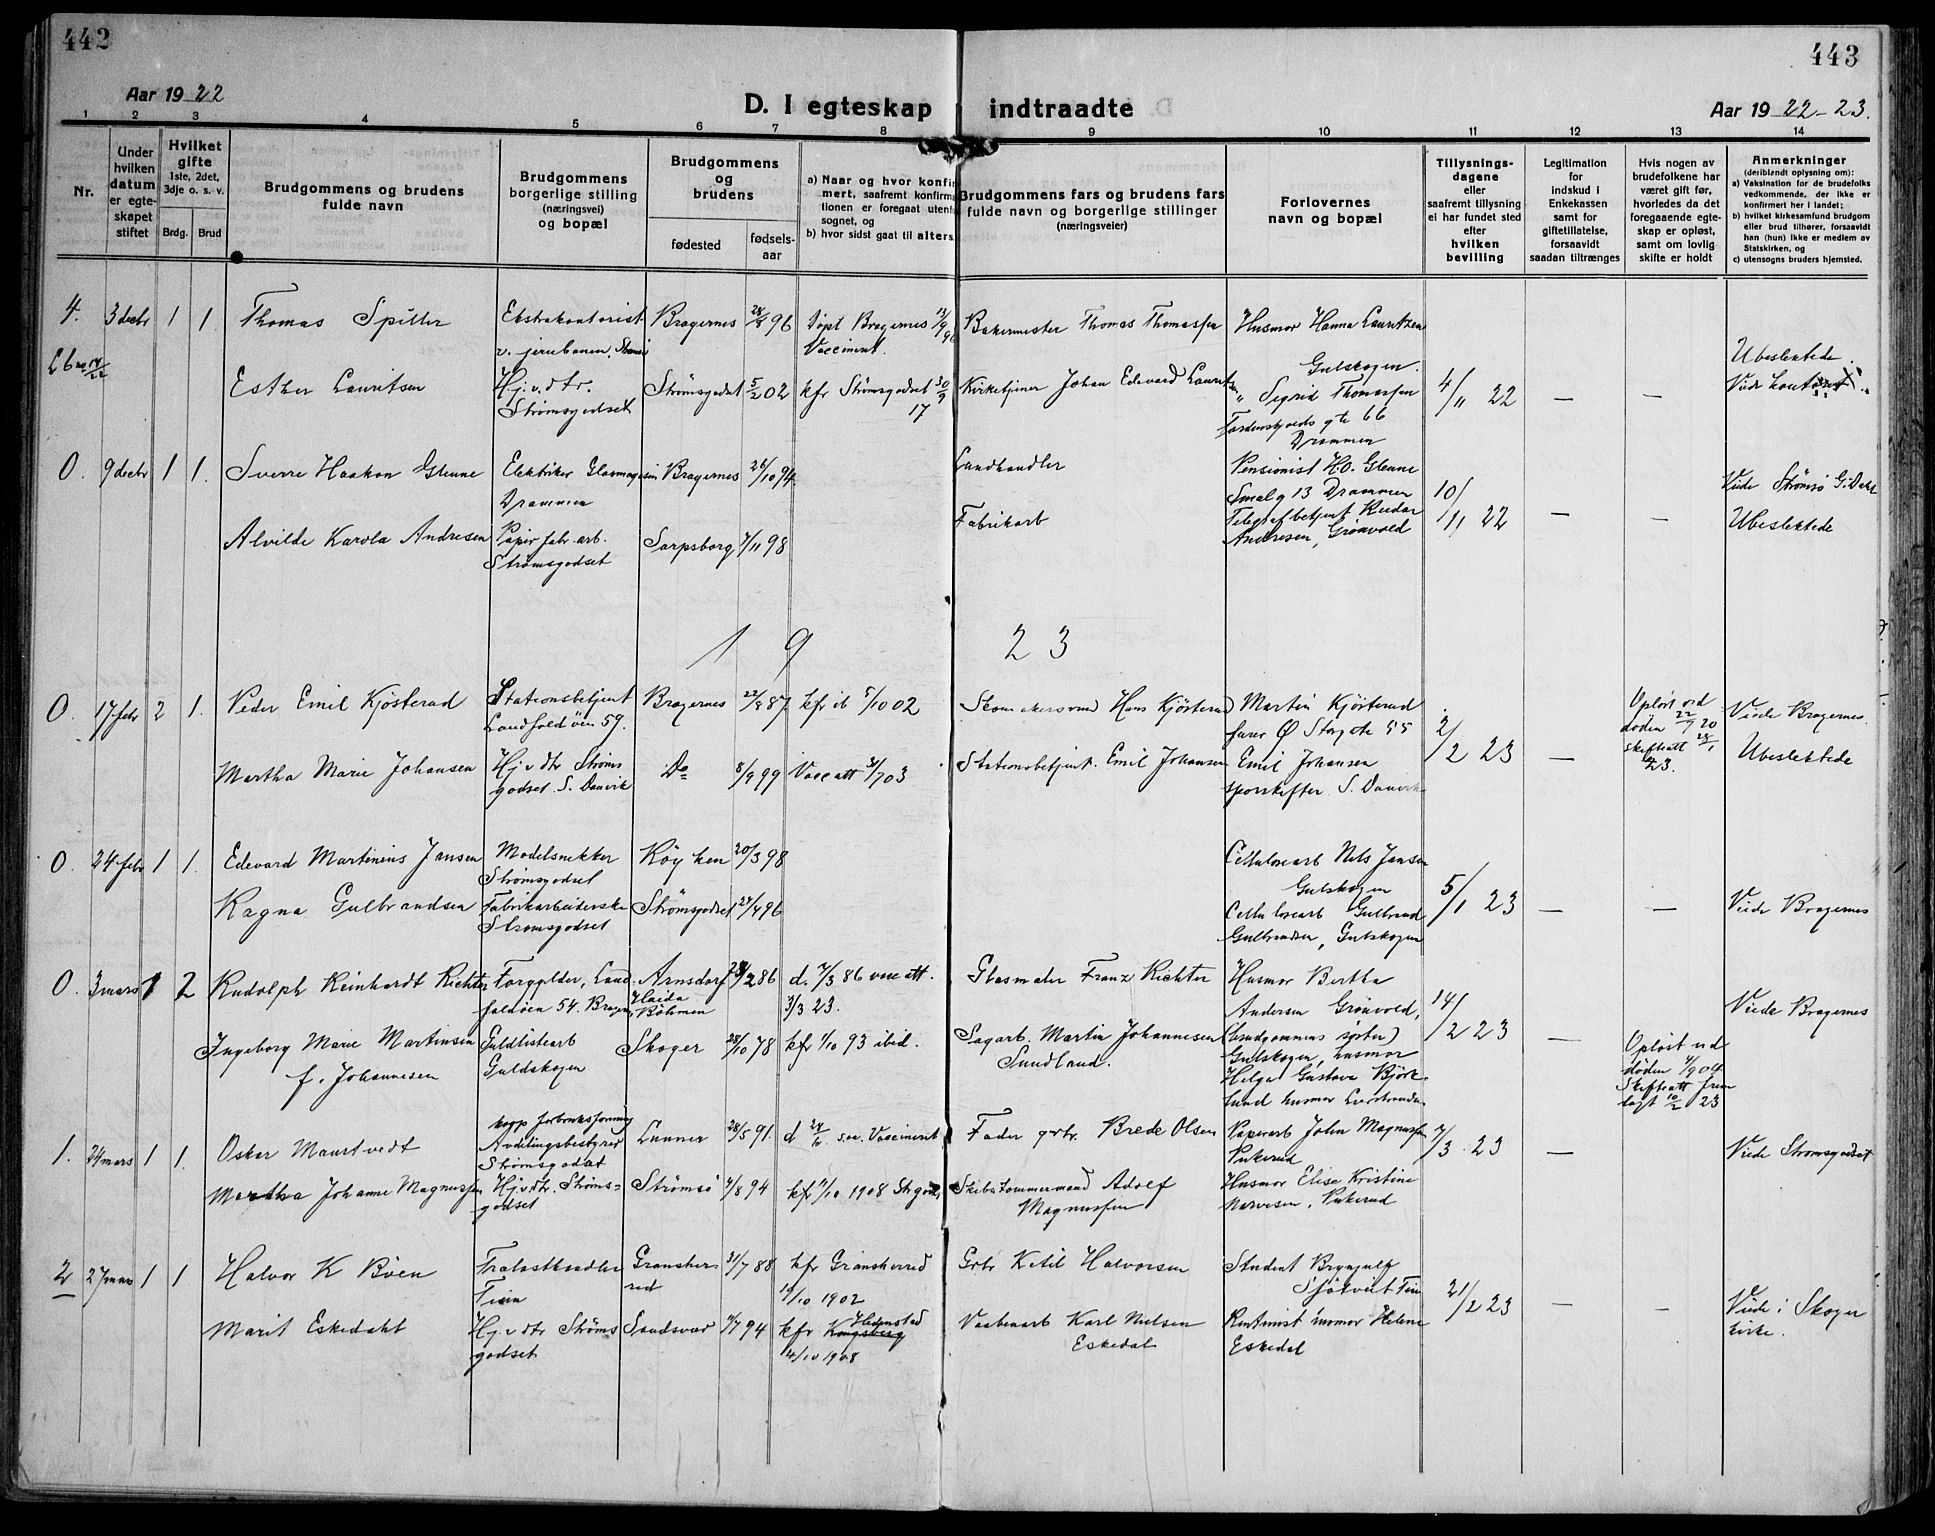 442
443
Aar 1922
D. I egteskap indtraadte
Aar 1922-23.
1 2 3 4 5 6 7 8 9 10 11 12 13 14
Nr.
Under hvilken datum er egteskapet stiftet
Hvilket gifte 1ste, 2det, 3dje o. s. v.
Brdg. Brud
Brudgommens og brudens fulde navn
Brudgommens borgerlige stilling (næringsvei) og bopæl
Brudgommens og brudens
fødested
fødsels-aar
a) Naar og hvor konfirmert, saafremt konfirmationen er foregaat utenfor sognet, og
b) hvor sidst gaat til alters.
Brudgommens fars og brudens fars fulde navn og borgerlige stillinger (næringsveier)
Forlovernes navn og bopæl
Tillysnings-dagene eller saafremt tillysning ei har fundet sted efter hvilken bevilling
Legitimation for indskud i Enkekassen samt for giftetillatelse, forsaavidt saadan tiltrænges
Hvis nogen av brudefolkene har været gift før, hvorledes da det foregaaende egteskap er opløst, samt om lovlig skifte er holdt
Anmerkninger (deriblandt oplysning om):
a) Vaksination for de brudefolks vedkommende, der ikke er konfirmert her i landet;
b) hvilket kirkesamfund brudgom eller brud tilhører, forsaavidt han (hun) ikke er medlem av Statskirken, og
c) utensogns bruders hjemsted.
4. 3 decbr 1 1. Thomas Spiller Ekstrakontorist v. jernbanen, Bragernes 28/8 96 Døpt Bragernes 13/9 96 Vaccinert. Bakermester Thomas Thomassen Husmor Hanna Lauritzen Gulskogen.
Esther Lauritsen Hj.v.dtr. Strømsgodset Strømsgodset 5/2 02 kfr Strømsgodset 30/9 17 Kirketjener Johan Edevard Lauritzen " Sigrid Thomassen Tordenskjolds gte 66 Drammen 4/11 22 — — Ubeslektede.
0. 9 decbr 1 1. Sverre Haakon Glenne Elektriker Glasmagasin Drammen Bragernes 26/10 94. Landhandler Pensionist H.O. Glenne Smalg 13 Drammen 10/11 22 — — Viede Strømsø G. Dahl
Alvilde Karola Andresen Papirfabr.arb. Strømsgodset Sarpsborg 7/11 98 Fabrikarb Telegrafbetjent Reidar Andresen, Grønvold Ubeslektede
1923
0. 17 febr 2 1. Peder Emil Kjøsterud Stationsbetjent Landfaldöen 59. Bragernes 22/8 87 kfr ib 5/10 02 Hans Kjøsterud Martin Kjøsterud Ø Storgate 55 2/2 23 — Opløst ved døden 22/9 20 skifteatt 23. Viede Bragernes.
Martha Marie Johansen Hj.v.dtr Strømsgodset. S. Danvik Do 8/9 99 Vacc att 31/7 03 Stationsbetjent. Emil Johansen Emil Johansen sporskifter S. Danvik Ubeslektede
0. 24 febr 1 1. Edevard Martinius Jansen Modelsnekker Strømsgodset Röyken 20/3 98 Cellulosearb Nils Jansen Gulskogen 5/1 23 — — Viede Bragernes
Ragna Gulbrandsen Fabrikarbeiderske Strømsgodset Strømsgodset 24/4 96 Cellulosearb Gulbrand Gulbrandsen, Gulskogen
0. 3 mars 1 2 Rudolph Reinhardt Richter Forgylder, Landfaldöen 54. Bragernes Arnsdorf Haida Böhmen 28/2 86 d. 7/3 86 vacc att. 3/3 23. Glasmaler Franz Richter Husmor Bertha Andersen Grönvold, (brudgommens søster) 14/2 23 — Viede Bragernes
Ingeborg Marie Martinsen f. Johannesen Guldlistearb Guldskogen Skoger 28/10 78 kfr 1/10 93 ibid. Sagarb. Martin Johannesen Sundland. Gulskogen, husmor Helga Gustava Björklund husmor Opløst ved døden 4/9 04. Skifteatt fremlagt 10/2 23
1. 24 mars 1 1. Oskar Maurtvedt Avdelingsbestyrer Strömsgodset Lunner 28/5 91. d. Vaccinert Fader grbr. Brede Olsen Papirarb John Magnussen Pukerud 7/3 23 — Viede Strömsgodset
Martha Johanne Magnussen Hj.v.dtr. Strömsgodset Strömsö 4/8 94 kfr 11/10 1908 Skibstømmermand Adolf Magnussen Husmor Elise Kristine Narvesen, Pukerud
2 27 mars 1 1 Halvor K Bøen Trælasthandler Tinn Gransherred 31/7 88 kfr Gransherred 19/10 1902 Grbr Ketil Halvorsen Student Brynjulf Sjötveit Tinn 21/2 23 — — Viede i Skoger kirke.
Marit Eskedahl Hj.v.dtr Strömsgodset Sandsvær 7/7 94 kfr Kongsberg Hedenstad 4/10 1908 Vaabenarb Karl Nielsen Eskedal Rentenist Helene Eskedal